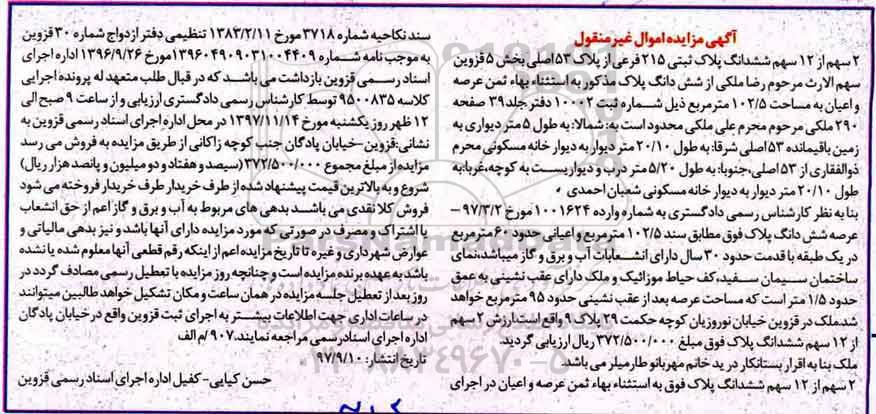 آگهی مزایده اموال غیر منقول
۲ سهم از ۱۲ سهم ششدانگ پلاک ثبتی ۲۱۵ فرعی از پلاک ۵۳ اصلی بخش ۵ قزوین
سهم الارث مرحوم رضا ملکی از شش دانگ پلاک مذکور به استثناء بهاء ثمن عرصه
و اعیان به مساحت ۱۰۲/۵ مترمربع ذیل شماره ثبت ۱۰۰۰۲ دفتر جلد ۳۹ صفحه
۲۹۰ ملکی مرحوم محرم علی ملکی محدود است به: شمالا: به طول ۵ متر دیواری به
زمین باقیمانده ۵۳ اصلی شرقا: به طول ۲۰/۱۰ متر دیوار به دیوار خانه مسکونی محرم
ذوالفقاری از ۵۳ اصلی، جنوبا: به طول ۵/۲۰ متر درب و دیواریست به کوچه، غربا: به
طول ۲۰/۱۰ متر دیوار به دیوار خانه مسکونی شعبان احمدی
بنا به نظر کارشناس رسمی دادگستری به شماره وارده ۱۰۰۱۶۲۴ مورخ ۹۷/۳/۲ -
عرصه شش دانگ پلاک فوق مطابق سند ۱۰۲/۵ مترمربع و اعیانی حدود ۶۰ مترمربع
در یک طبقه با قدمت حدود ۳۰ سال دارای انشعابات آب و برق و گاز میباشد، نمای
ساختمان سیمان سفید، کف حیاط موزائیک و ملک دارای عقب نشینی به عمق
حدود ۱/۵ متر است که مساحت عرصه بعد از عقب نشینی حدود ۹۵ مترمربع خواهد
شد. ملک در قزوین خیابان نوروزیان کوچه حکمت ۲۹ پلاک ۹ واقع است ارزش ۲ سهم
از ۱۲ سهم ششدانگ پلاک فوق مبلغ ۳۷۲/۵۰۰/۰۰۰ ریال ارزیابی گردید.
ملک بنا به اقرار بستانکار در ید خانم مهربانو طارمیلر می باشد.
۲ سهم از ۱۲ سهم ششدانگ پلاک فوق به استثناء بهاء ثمن عرصه و اعیان در اجرای
سند نکاحیه شماره ۳۷۱۸ مورخ ۱۳۸۳/۲/۱۱ تنظیمی دفتر ازدواج شماره ۳۰ قزوین
به موجب نامه شماره ۱۳۹۶۰۴۹۰۹۰۳۱۰۰۴۴۰۹ مورخ ۱۳۹۶/۹/۲۶ اداره اجرای
اسناد رسمی قزوین بازداشت می باشد که در قبال طلب متعهد له پرونده اجرایی
کلاسه ۹۵۰۰۸۳۵ توسط کارشناس رسمی دادگستری ارزیابی و از ساعت ۹ صبح الی
۱۲ ظهر روز یکشنبه مورخ ۱۳۹۷/۱۱/۱۴ در محل اداره اجرای اسناد رسمی قزوین به
نشانی: قزوین - خیابان پادگان جنب کوچه زاکانی از طریق مزایده به فروش می رسد
مزایده از مبلغ مجموع ۳۷۲/۵۰۰/۰۰۰ (سیصد و هفتاد و دو میلیون و پانصد هزار ریال)
شروع و به بالاترین قیمت پیشنهاد شده از طرف خریدار طرف خریدار فروخته می شود
فروش کلا نقدی می باشد بدهی های مربوط به آب و برق و گاز اعم از حق انشعاب
یا اشتراک و مصرف در صورتی که مورد مزایده دارای آنها باشد و نیز بدهی مالیاتی و
عوارض شهرداری و غیره تا تاریخ مزایده اعم از اینکه رقم قطعی آنها معلوم شده یا نشده
باشد به عهده برنده مزایده است و چنانچه روز مزایده با تعطیل رسمی مصادف گردد در
روز بعد از تعطیل جلسه مزایده در همان ساعت و مکان تشکیل خواهد طالبین میتوانند
در ساعات اداری جهت اطلاعات بیشتر به اجرای ثبت قزوین واقع در خیابان پادگان
اداره اجرای اسناد رسمی مراجعه نمایند. ۹۰۷/م الف
تاریخ انتشار: ۹۷/۹/۱۰
حسن کیایی - کفیل اداره اجرای اسناد رسمی قزوین
ParsNamadData